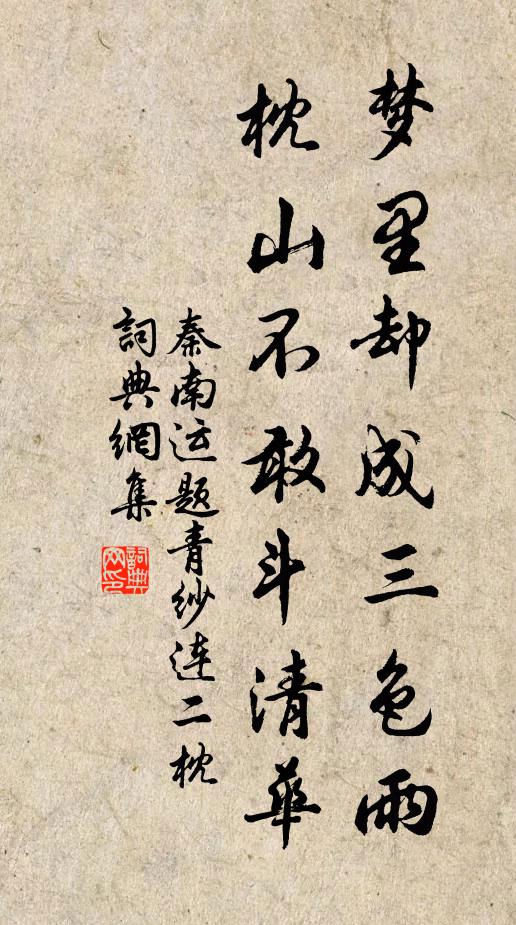 梦里却成三色雨
枕山不敢斗清華
秦南运题青纱连二枕
詞典網集
詞典网印